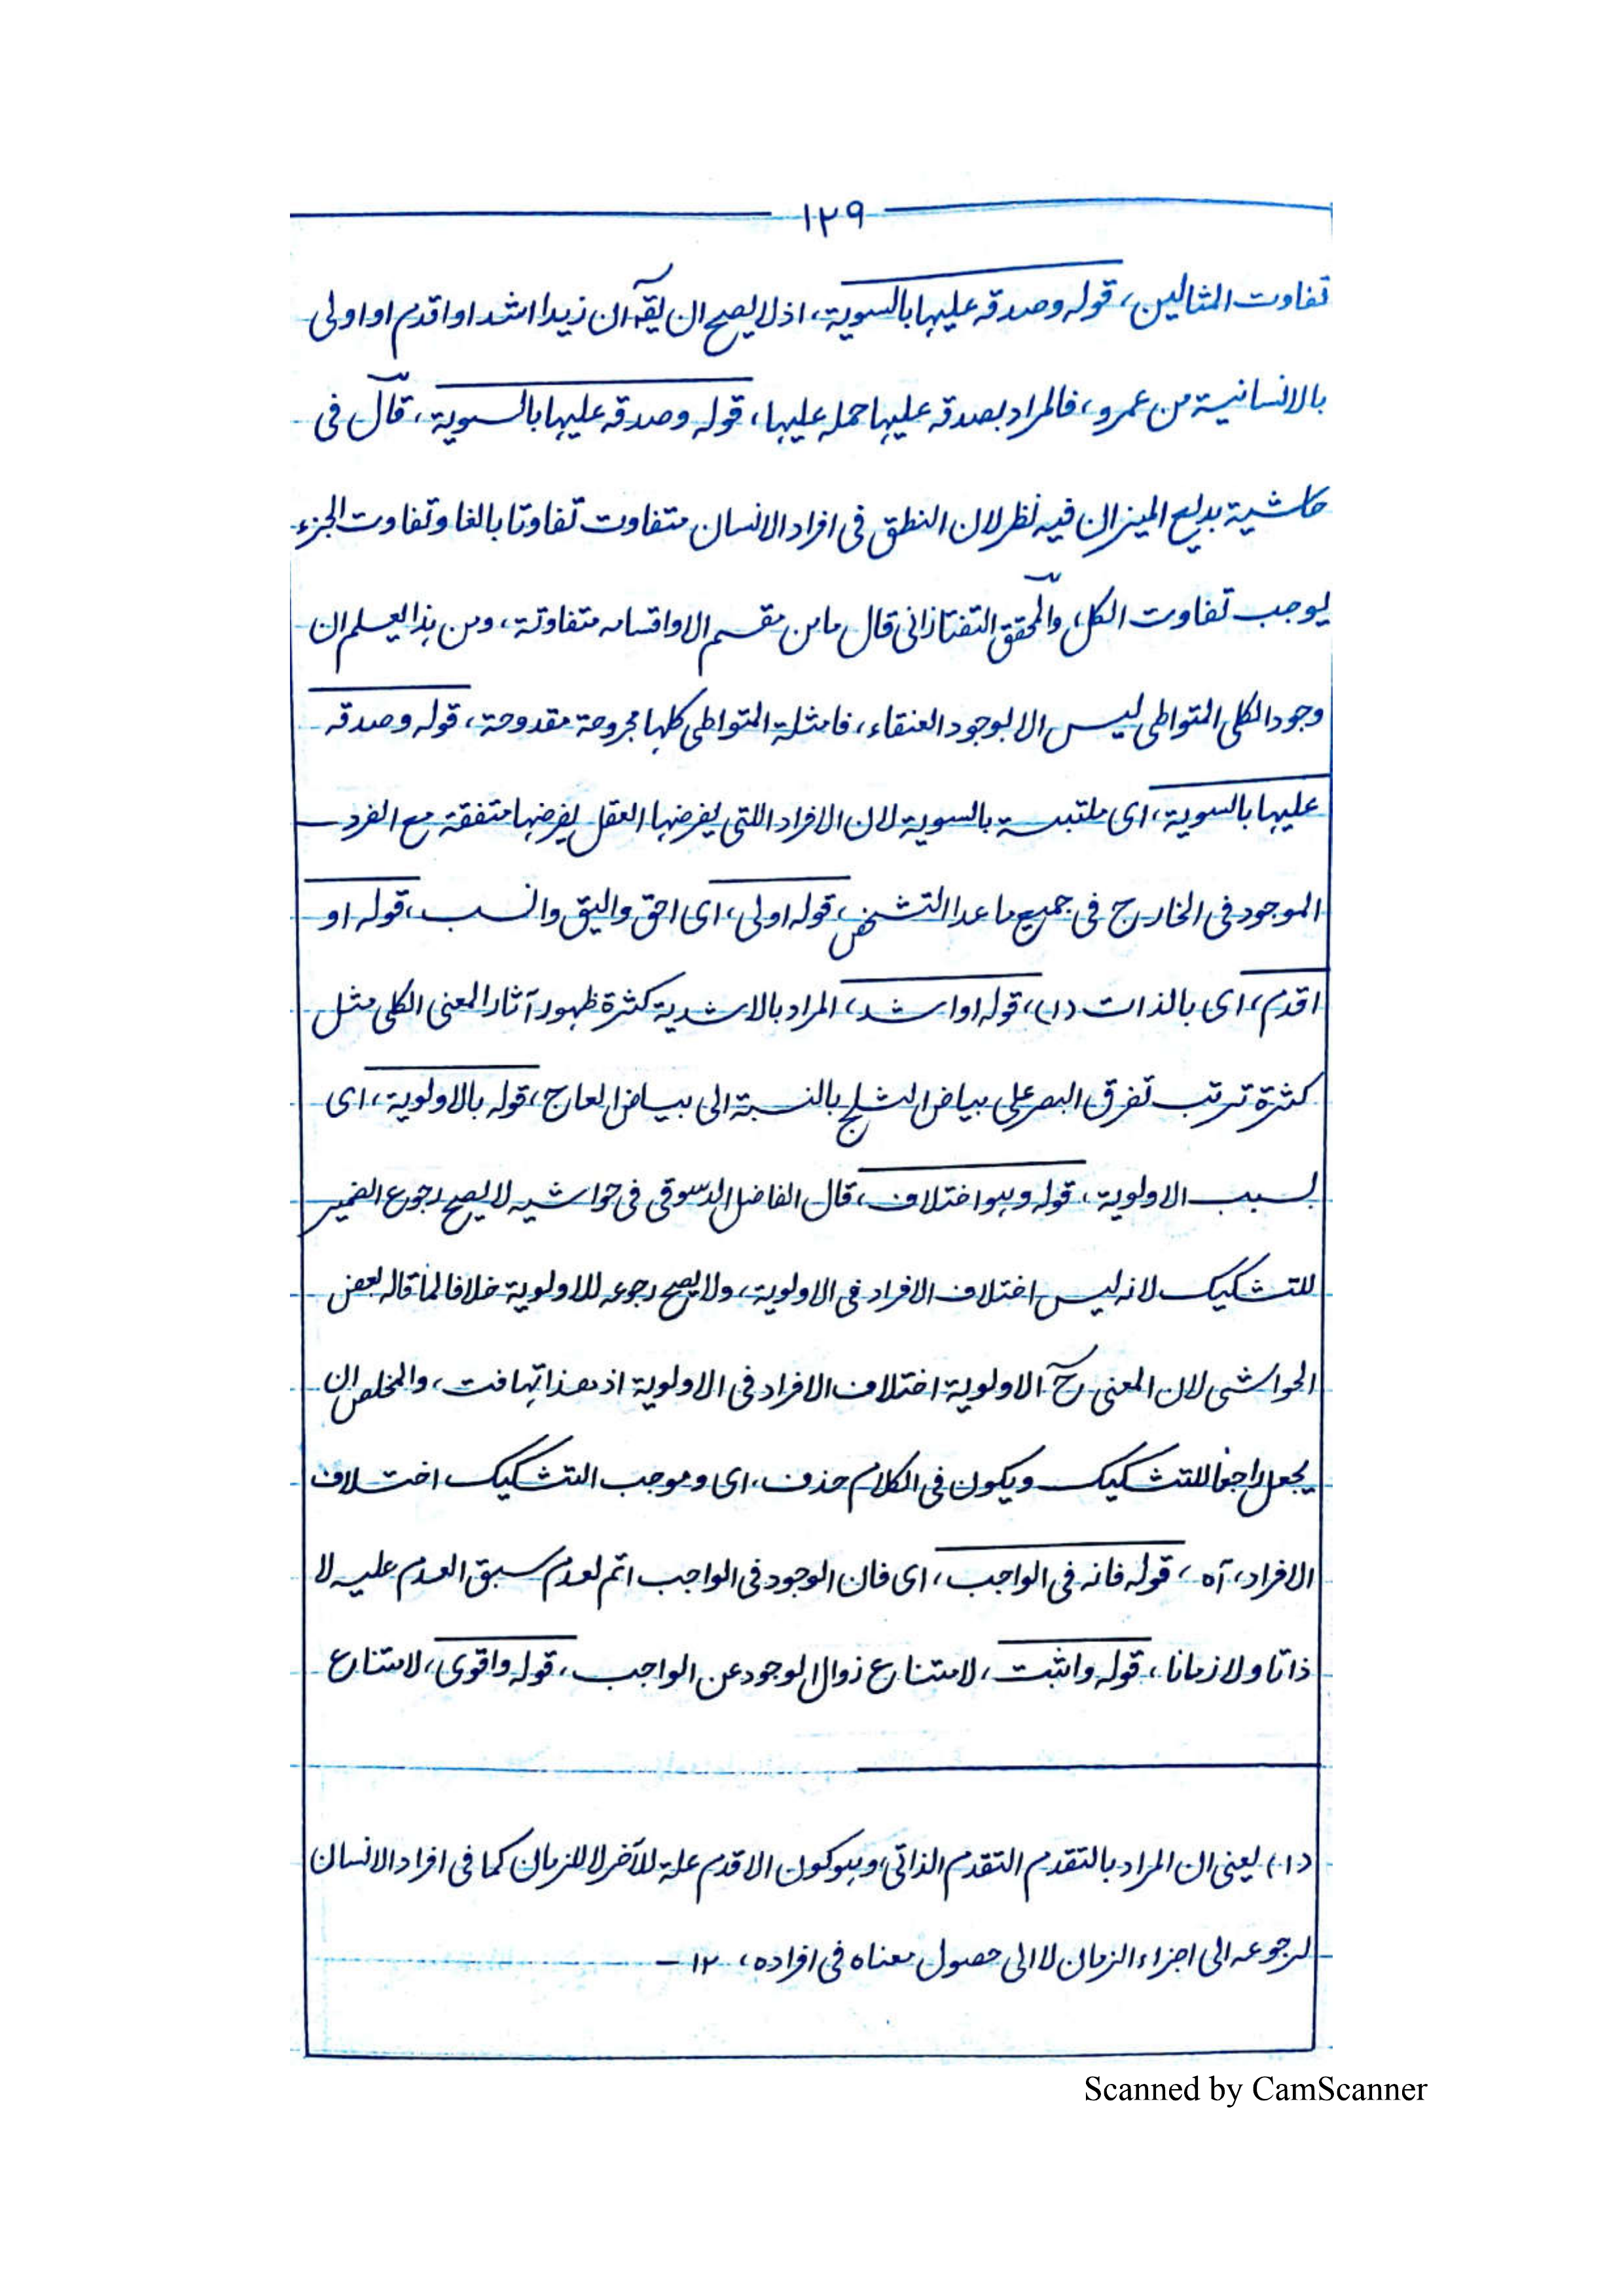 ١٢٩
تفاوت المثالين، قوله وصدقه عليها بالسوية، اذ لا يصح ان يقۤ ان زيدا اشد او اقدم او اولى
بالانسانية من عمرو، فالمراد بصدقه عليها حمله عليها، قوله وصدقه عليها بالسوية، قال فى
حاشية بديع الميزان فيه نظر لان النطق فى افراد الانسان متفاوت تفاوتا بالغا وتفاوت الجزء
يوجب تفاوت الكل، والمحقق التفتازانى قال ما من مقسم الا واقسامه متفاوتة، ومن هذا يعلم ان
وجود الكلى المتواطى ليس الا بوجود العنقاء، فامثلة المتواطى كلها مجروحة مقدوحة، قوله وصدقه
عليها بالسوية، اى ملتبسة بالسوية لان الافراد اللتى يفرضها العقل يفرضها متفقة مع الفرد
الموجود فى الخارج فى جميع ما عدا التشخص، قوله اولى، اى احق واليق وانسب، قوله او
اقدم، اى بالذات (١)، قوله او اشد، المراد بالاشدية كثرة ظهور آثار المعنى الكلى مثل
كثرة ترتب تفرق البصر على بياض الثلج بالنسبة الى بياض العاج، قوله بالاولوية، اى
بسبب الاولوية، قوله وهو اختلاف، قال الفاضل الدسوقى فى حواشيه لا يصح رجوع الضمير
للتشكيك لانه ليس اختلاف الافراد فى الاولوية، ولا يصح رجوعه للاولوية خلافا لما قاله بعض
الحواشى لان المعنى حۤ الاولوية اختلاف الافراد فى الاولوية اذ هذا تهافت، والمخلص ان
يجعل راجعا للتشكيك ويكون فى الكلام حذف، اى وموجب التشكيك اختلاف
الافراد، آه، قوله فانه فى الواجب، اى فان الوجود فى الواجب اتم لعدم سبق العدم عليه لا
ذاتا ولا زمانا، قوله واثبت، لامتناع زوال الوجود عن الواجب، قوله واقوى، لامتناع
(١) يعنى ان المراد بالتقدم التقدم الذاتى، وهو كون الاقدم علة للآخر لا للزمان كما فى افراد الانسان
لرجوعه الى اجزاء الزمان لا الى حصول معناه فى افراده، ١٢ -
Scanned by CamScanner